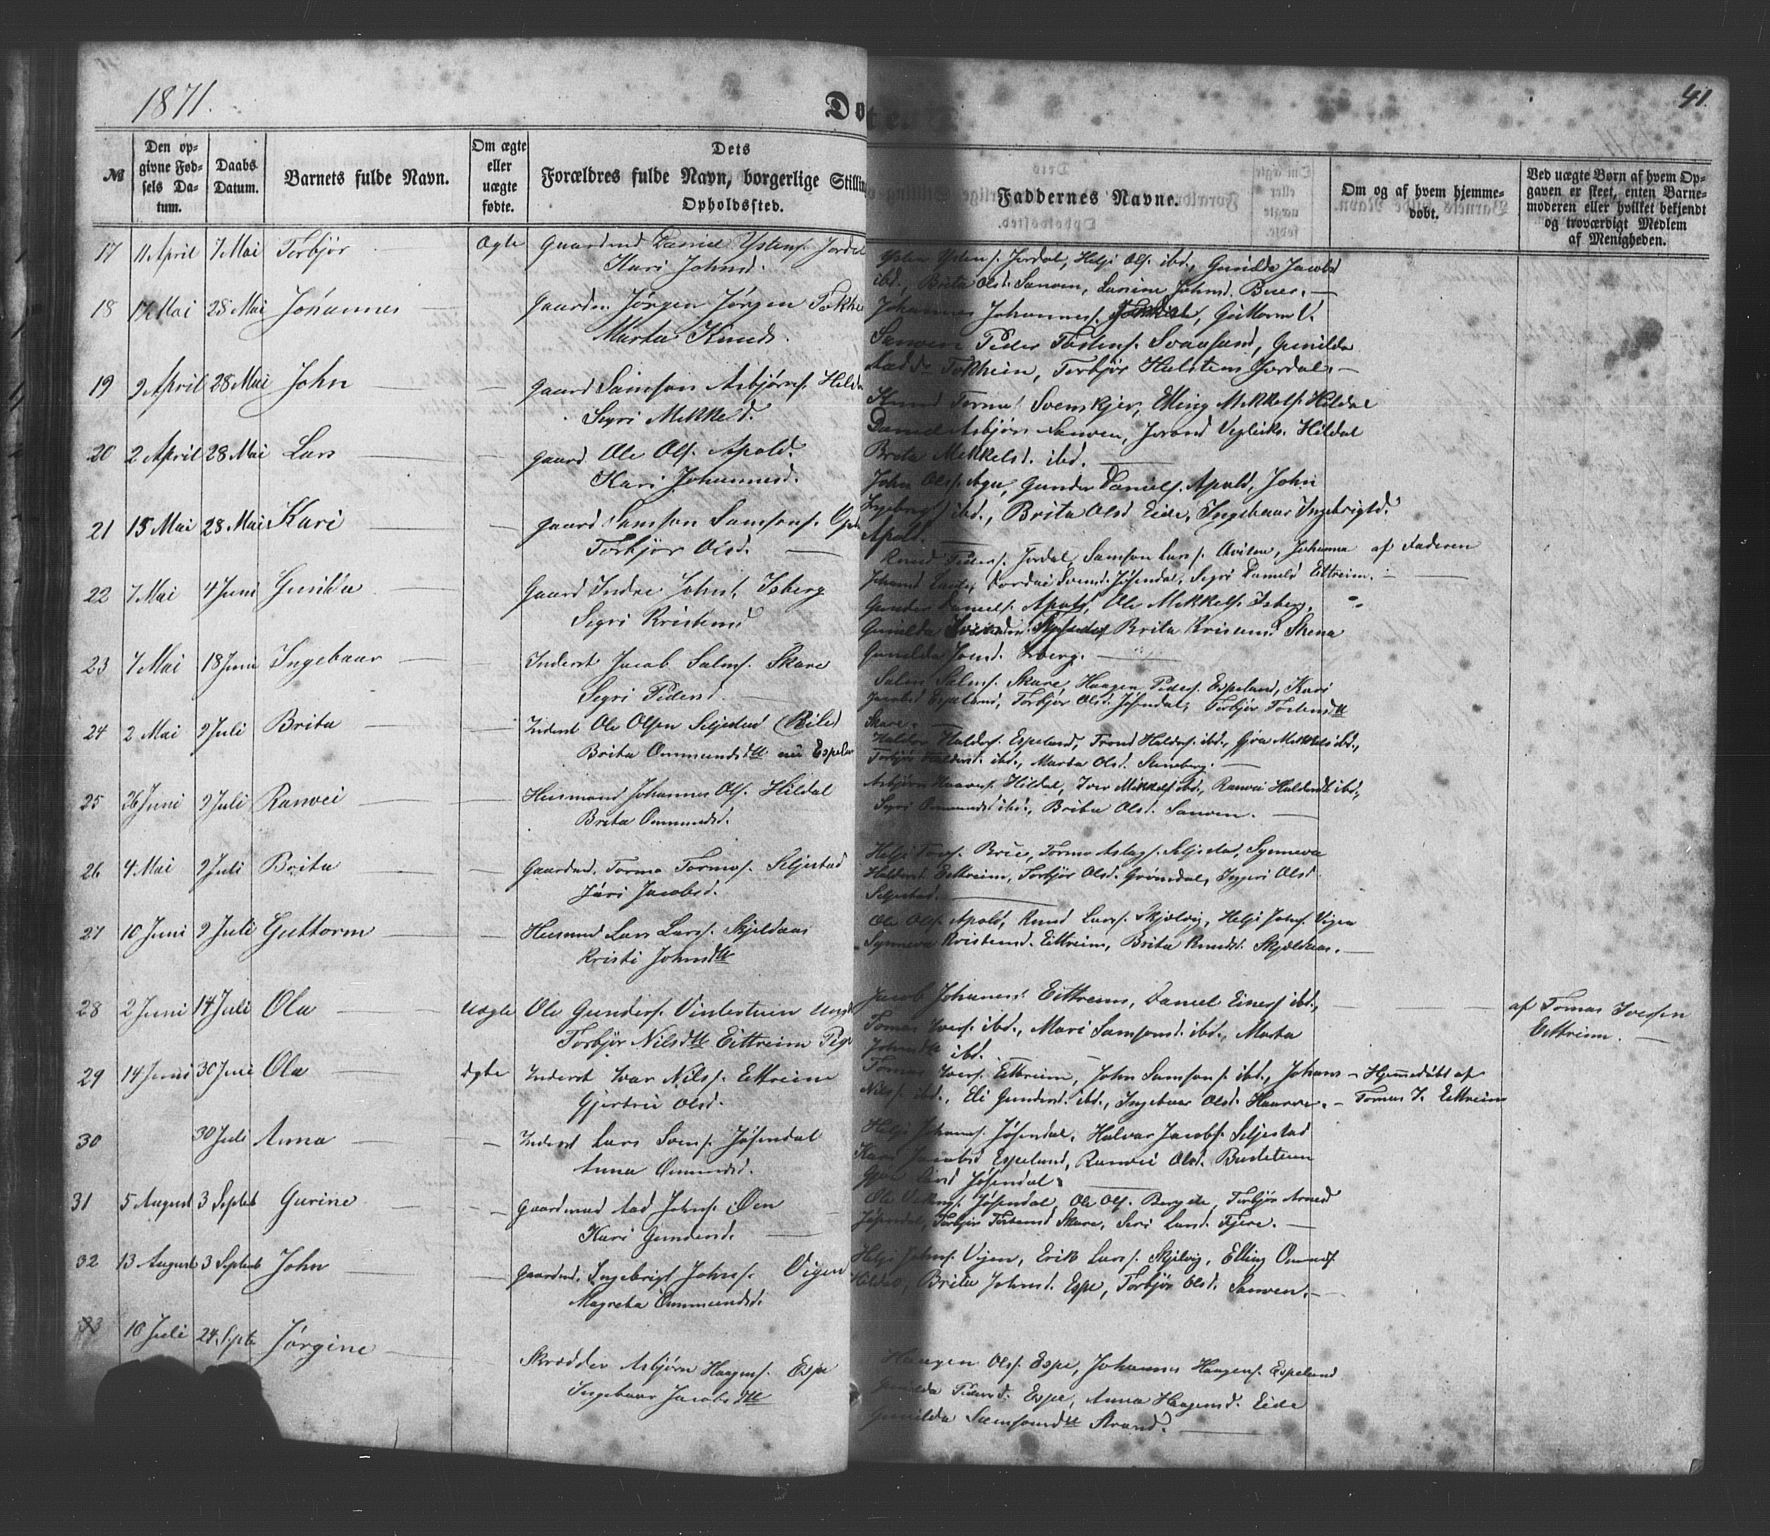 1871.
41.
Døbte
№
Den opgivne Fødsels Datum.
Daabs Datum.
Barnets fulde Navn.
Om ægte eller uægte fødte.
Dets Forældres fulde Navn, borgerlige Stilling Opholdssted.
Faddernes Navne.
Om og af hvem hjemmedøbt.
Ved uægte Børn af hvem Opgaven er skeet, enten Barnemoderen eller hvilket bekjendt og troværdigt Medlem af Menigheden.
17 11 April 7 Mai Torbjør Ægte Gaardmd Daniel Ystens. Jordal
Kari Johnsd.
Ysten Ystens. Jordal, Helji Ols. ibd., Gunilda Jacobsd
ibd., Brita Olsd. Sanven, Johnsd. Buer. —
18 17 Mai 28 Mai Johannes — — Gaardm. Jørgen Jørgens Tokhe
Marta Knuds.
Johannes Johanness. Guttorm
Sanven Peder Tostens. Svaasand, Gunilda
Tokheim, Torbjør Halstens Jordal. —
19 2 April 28 Mai John — — Gaard Samson Asbjørns. Hilda
Segri Mikkelsd.
Knud Tormos Svenskjer, Elling Mikkels. Hildal
Daniel Asbjørns Sanven, Hildal
Brita Mikkelsd. ibd. —
20 2 April 28 Mai Lars — — Gaard Ole Ols. Apold.
Kari Johannesd.
John Ols. Aga, Gunder Daniels. Apold, John
ibd., Brita Olsd Eide, Ingebaar Ingebrigtsd.
Apold. —
21 15 Mai 28 Mai Kari — — Gaard Samson Samsons.
Torbjør Olsd. —
Knud Peders. Jordal, Samson Lars. Johanna af Faderen
Jøsendal, Segri Danielsd Eittreim. —
22 7 Mai 4 Juni Gunilda — — Gaard Indre Johns. Isberg
Segri Kristensd
Gunder Daniels. Apold, Ole Mikkels. Isberg,
Gunilda Brita Skena
Gunilda Isberg. —
23 7 Mai 18 Juni Ingebaar — — Inderst Jacob Salms. Skare
Segri Pedersd. —
Salms. Skare, Haagen Peders. Espeland, Kari
Jacobsd Espeland, Torbjør Olsd. Jøsendal, Torbjør Tostensdtt
Skare. —
24 2 Mai 9 Juli Brita — — Inderst Ole Olsen Seljestad
Brita Ommundsdtt nu Espelan
Haldor Haldors. Espeland, Trond Haldors. ibd., Gjra Mikkels ibd.,
Torbjør Haldorsd. ibd., Marta Olsd. —
25 26 Juni 9 Juli Ranvei — — Husmand Johannes Ols. Hildal
Brita Ommundsd.
Asbjørn Haavors. Hildal, Iver Mikkels ibd., Ranvei Haldorsdtt ibd.,
Segri Ommundsd ibd., Brita Olsd. Sanven. —
26 4 Mai 9 Juli Brita — — Gaardmd. Tormo Tormos. Seljestad
Jacobsd.
Helji Tors. Tormo Aslags. Seljestad, Synneva
Haldorsd. Eittreim, Torbjør Olsd. Grønsdal, Ingeri Olsd.
Seljestad. —
27 10 Juni 9 Juli Guttorm — — Husmd Lars Lars. Skjeldaas
Kristi Johnsdtt
Ole Ols. Apold, Knud Lars. Skjelvig, Helji Johns. Vigen
Synneva Kristensd. Eittreim, Brita Knudsd. Skjeldaas. —
28 2 Juni 14 Juli Ola — Uægte Ole Gunders. Vintertuin Ungk
Torbjør Nilsdtt Eittreim Pige
Jacob Johannes. Eittreim, Daniel Einars. ibd.,
Tomas Ivers. ibd., Mari Samsonsd. ibd., Marta
Johnsdtt ibd.
af Tomas Iversen
Eittreim. —
29 14 Juni 30 Juli Ola — Ægte Inderst Ivar Nilss. Eittreim
Gjertrü Olsd.
Tomas Ivers. Eittreim, John Samsons. ibd., Johans — Hjemmedøbt af
Nils. ibd., Eli Gundersd. ibd., Ingebaar Olsd. — Tomas I. Eittreim
30 30 Juli Anna — — Inderst Lars Svens. Jøsendal
Anna Ommundsd.
Helji Johans. Jøsendal, Halvar Jacobs. Seljestad
Kari Jacobsd Espeland, Ranvei Olsd.
Jøsendal.
31 5 August 3 Septemb Gurine — — Gaardmand Aad Johns. Øen
Kari Gundersd. —
Ole Jøsendal, Ole Ols. Torbjør Arnesd
Jøsendal, Torbjør Tostensd Skare, Larsd. —
32 13 August 3 Septemb John — — Gaardmd. Ingebrigt Johns. Vigen
Magreta Ommundsd.
Helji Johns. Vigen, Erik Lars. Skjelvig, Elling Omunds.
Hildal, Brita Johnsd. Espe, Torbjør Olsd. Sanven. —
33 10 Juli 24. Septb Jørgine — — Skrædder Asbjørn Haagens. Espe
Ingebaar Jacobsdtt
Haagen Ols. Espe, Johannes Haagens. Espeland
Gunilda Pedersd. Espe, Anna Haagensd. Eide
Gunilda Samsonsdtt Strand. —